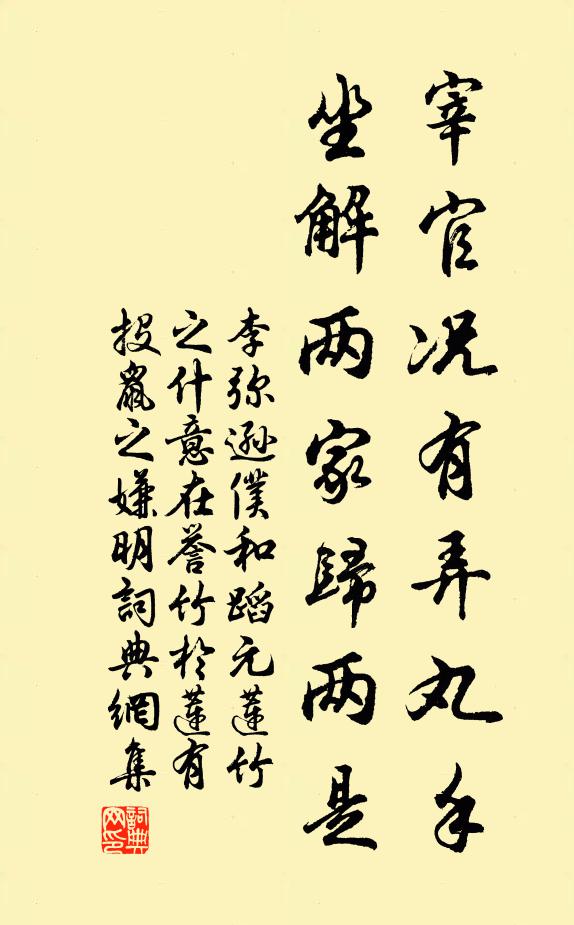 宰官况有弄丸手
坐解两家歸两是
李弥遜僕和蹈元蓮竹
之什意在誉竹於蓮有
投鼠之嫌明詞典網集
詞典网印